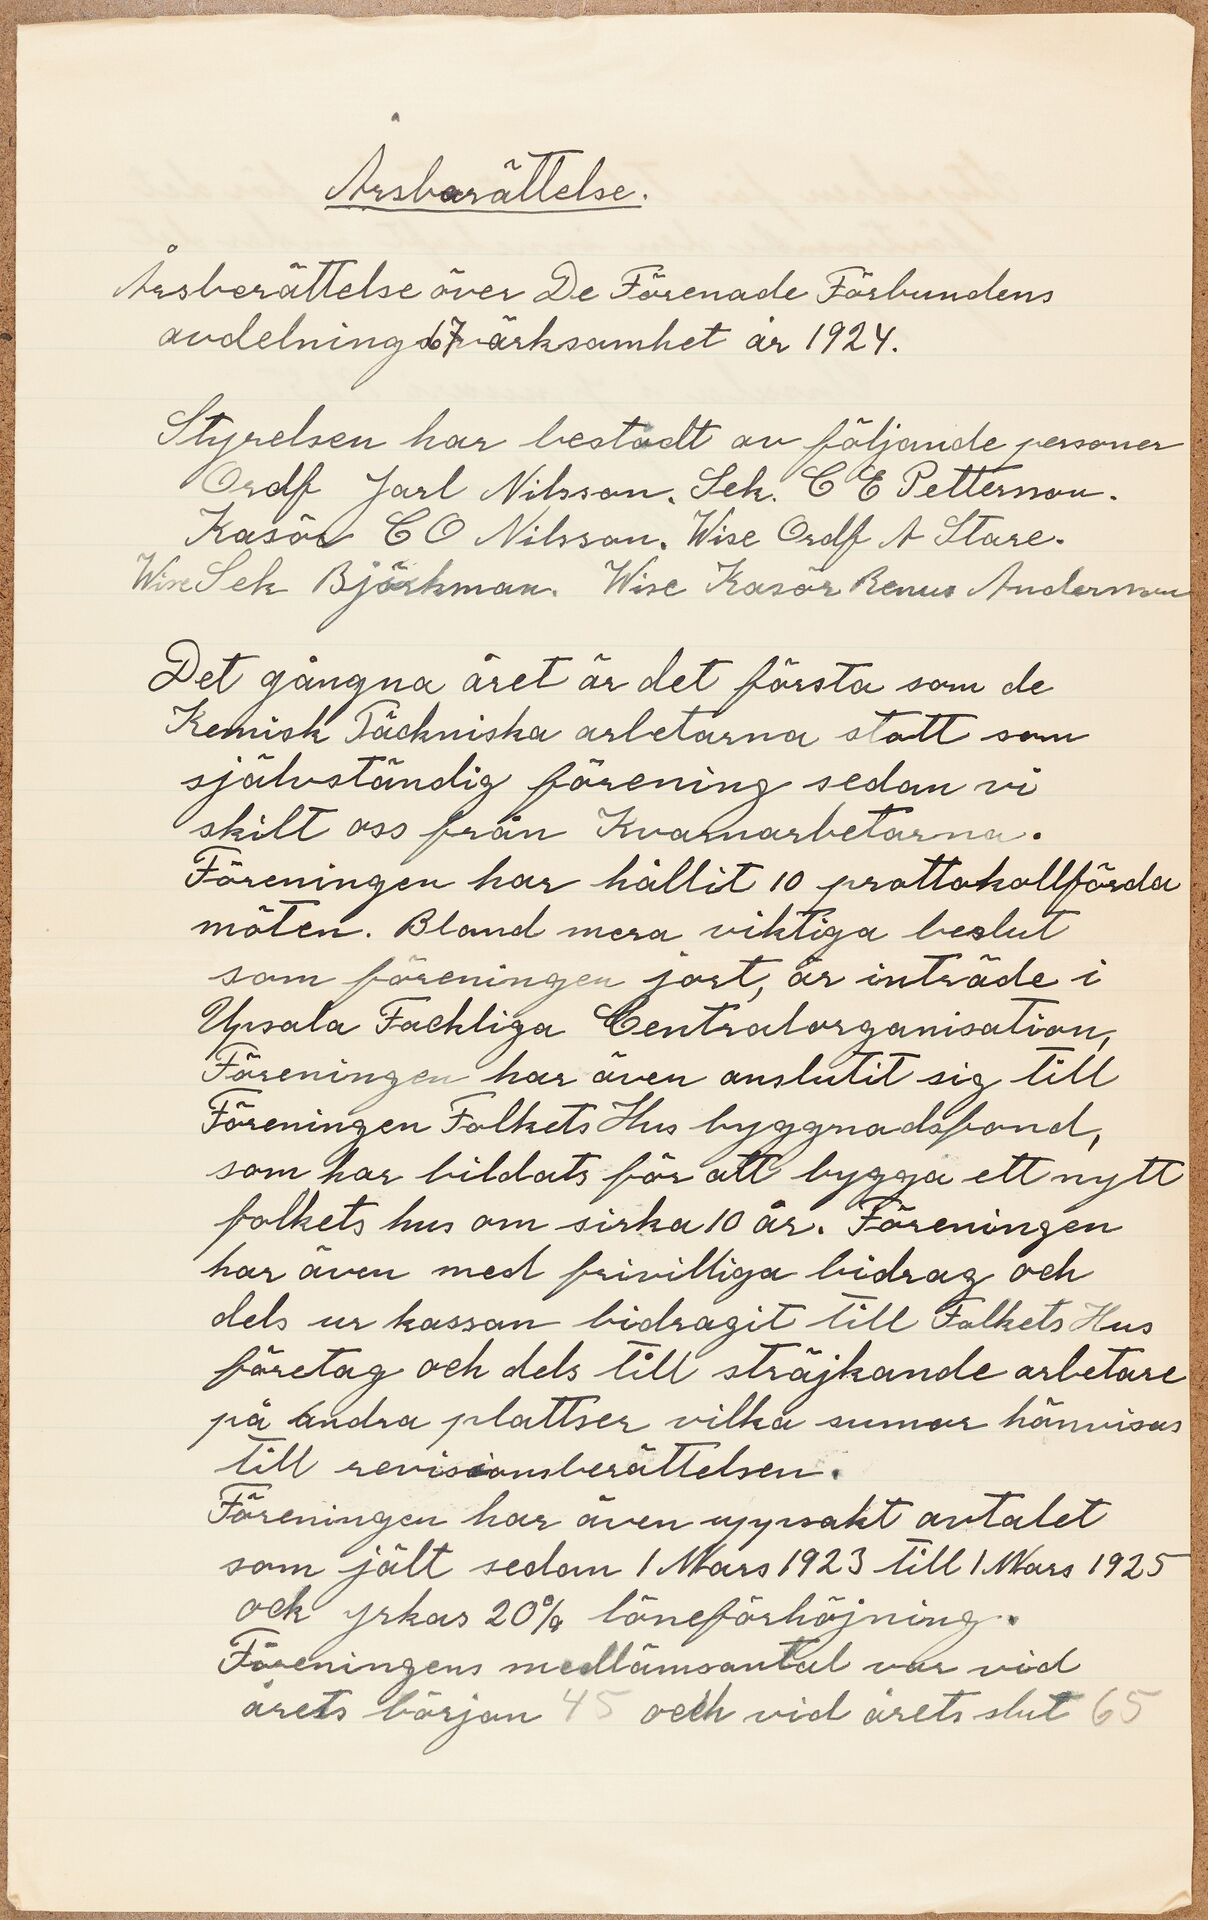 Årsberättelse.
Årsberättelse över De Förenade Förbundens
avdelning 67 värksamhet år 1924.
Styrelsen har bestådt av följande personer
Ordf Jarl Nilsson. Sek. C E Petterson.
Kasör C O Nilsson. Wise Ordf A Stare.
Wise Sek Björkman. Wise Kasör Renus Anderson
Det gångna året är det första som de
Kemisk Täckniska arbetarna stått som
självständig förening sedan vi
skilt oss från Kvarnarbetarna.
Föreningen har hållit 10 prottokollförda
möten. Bland mera viktiga beslut
som föreningen jort, är inträde i
Upsala Fackliga Centralorganisation,
Föreningen har även anslutit sig till
Föreningen Folkets Hus byggnadsfond,
som har bildats för att bygga ett nytt
folkets hus om sirka 10 år. Föreningen
har även med frivilliga bidrag och
dels ur kassan bidragit till Folkets Hus
företag och dels till sträjkande arbetare
på andra plattser vilka sumor hänvisas
till revisionsberättelsen.
Föreningen har även uppsakt avtalet
som jält sedan 1 Mars 1923 till 1 Mars 1925
ock yrkas 20% löneförhöjning.
Föreningens medlämsantal var vid
årets början 45 och vid årets slut 65